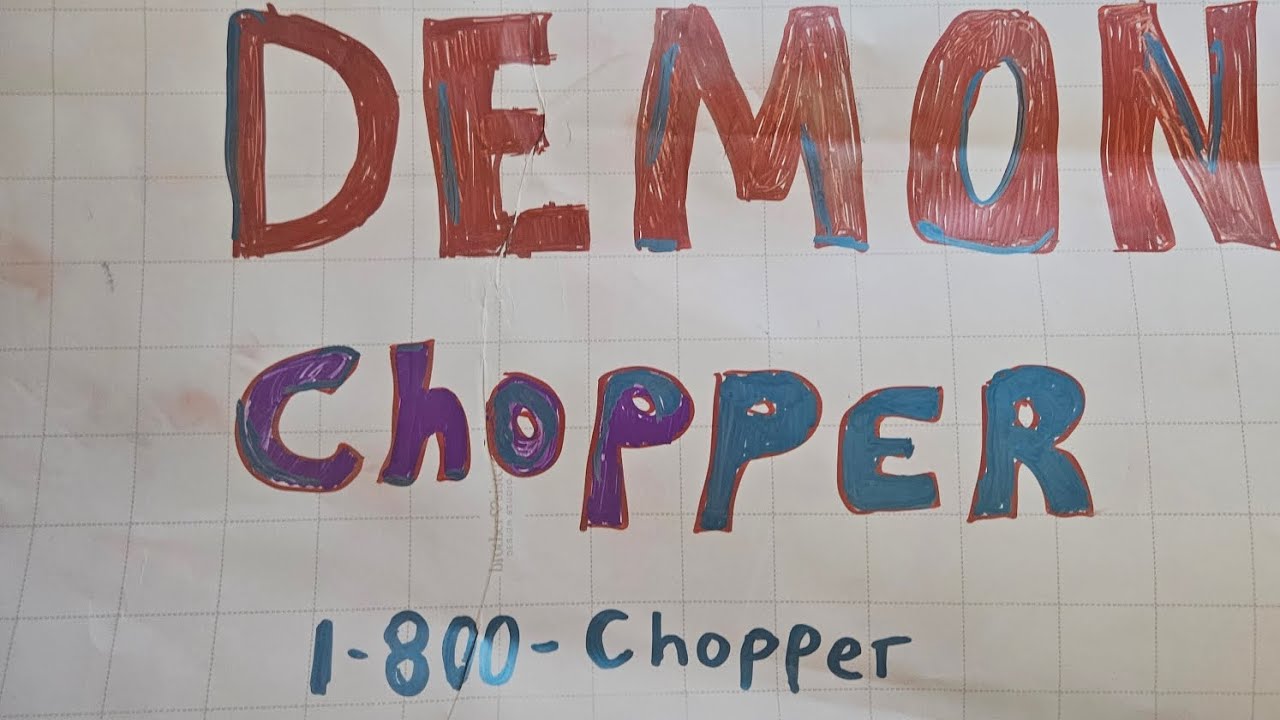 DEMON
Chopper
1-800-Chopper